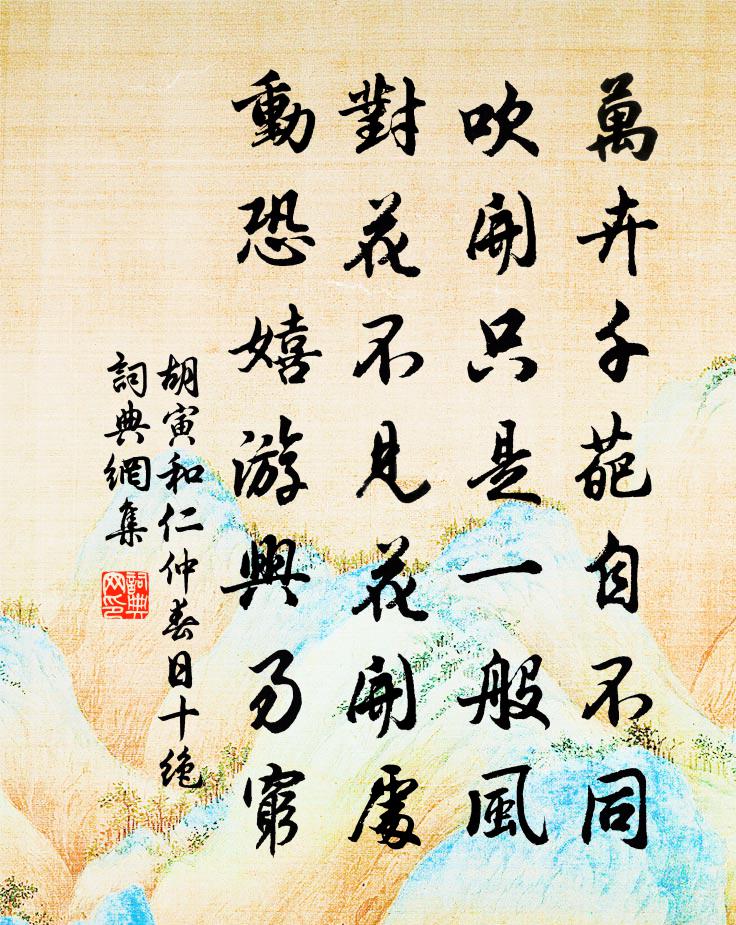 萬卉千葩自不同
吹開只是一般風
對花不見花開處
動恐嬉游興易窮
胡寅和仁仲春日十絕
詞典網集
詞典网印